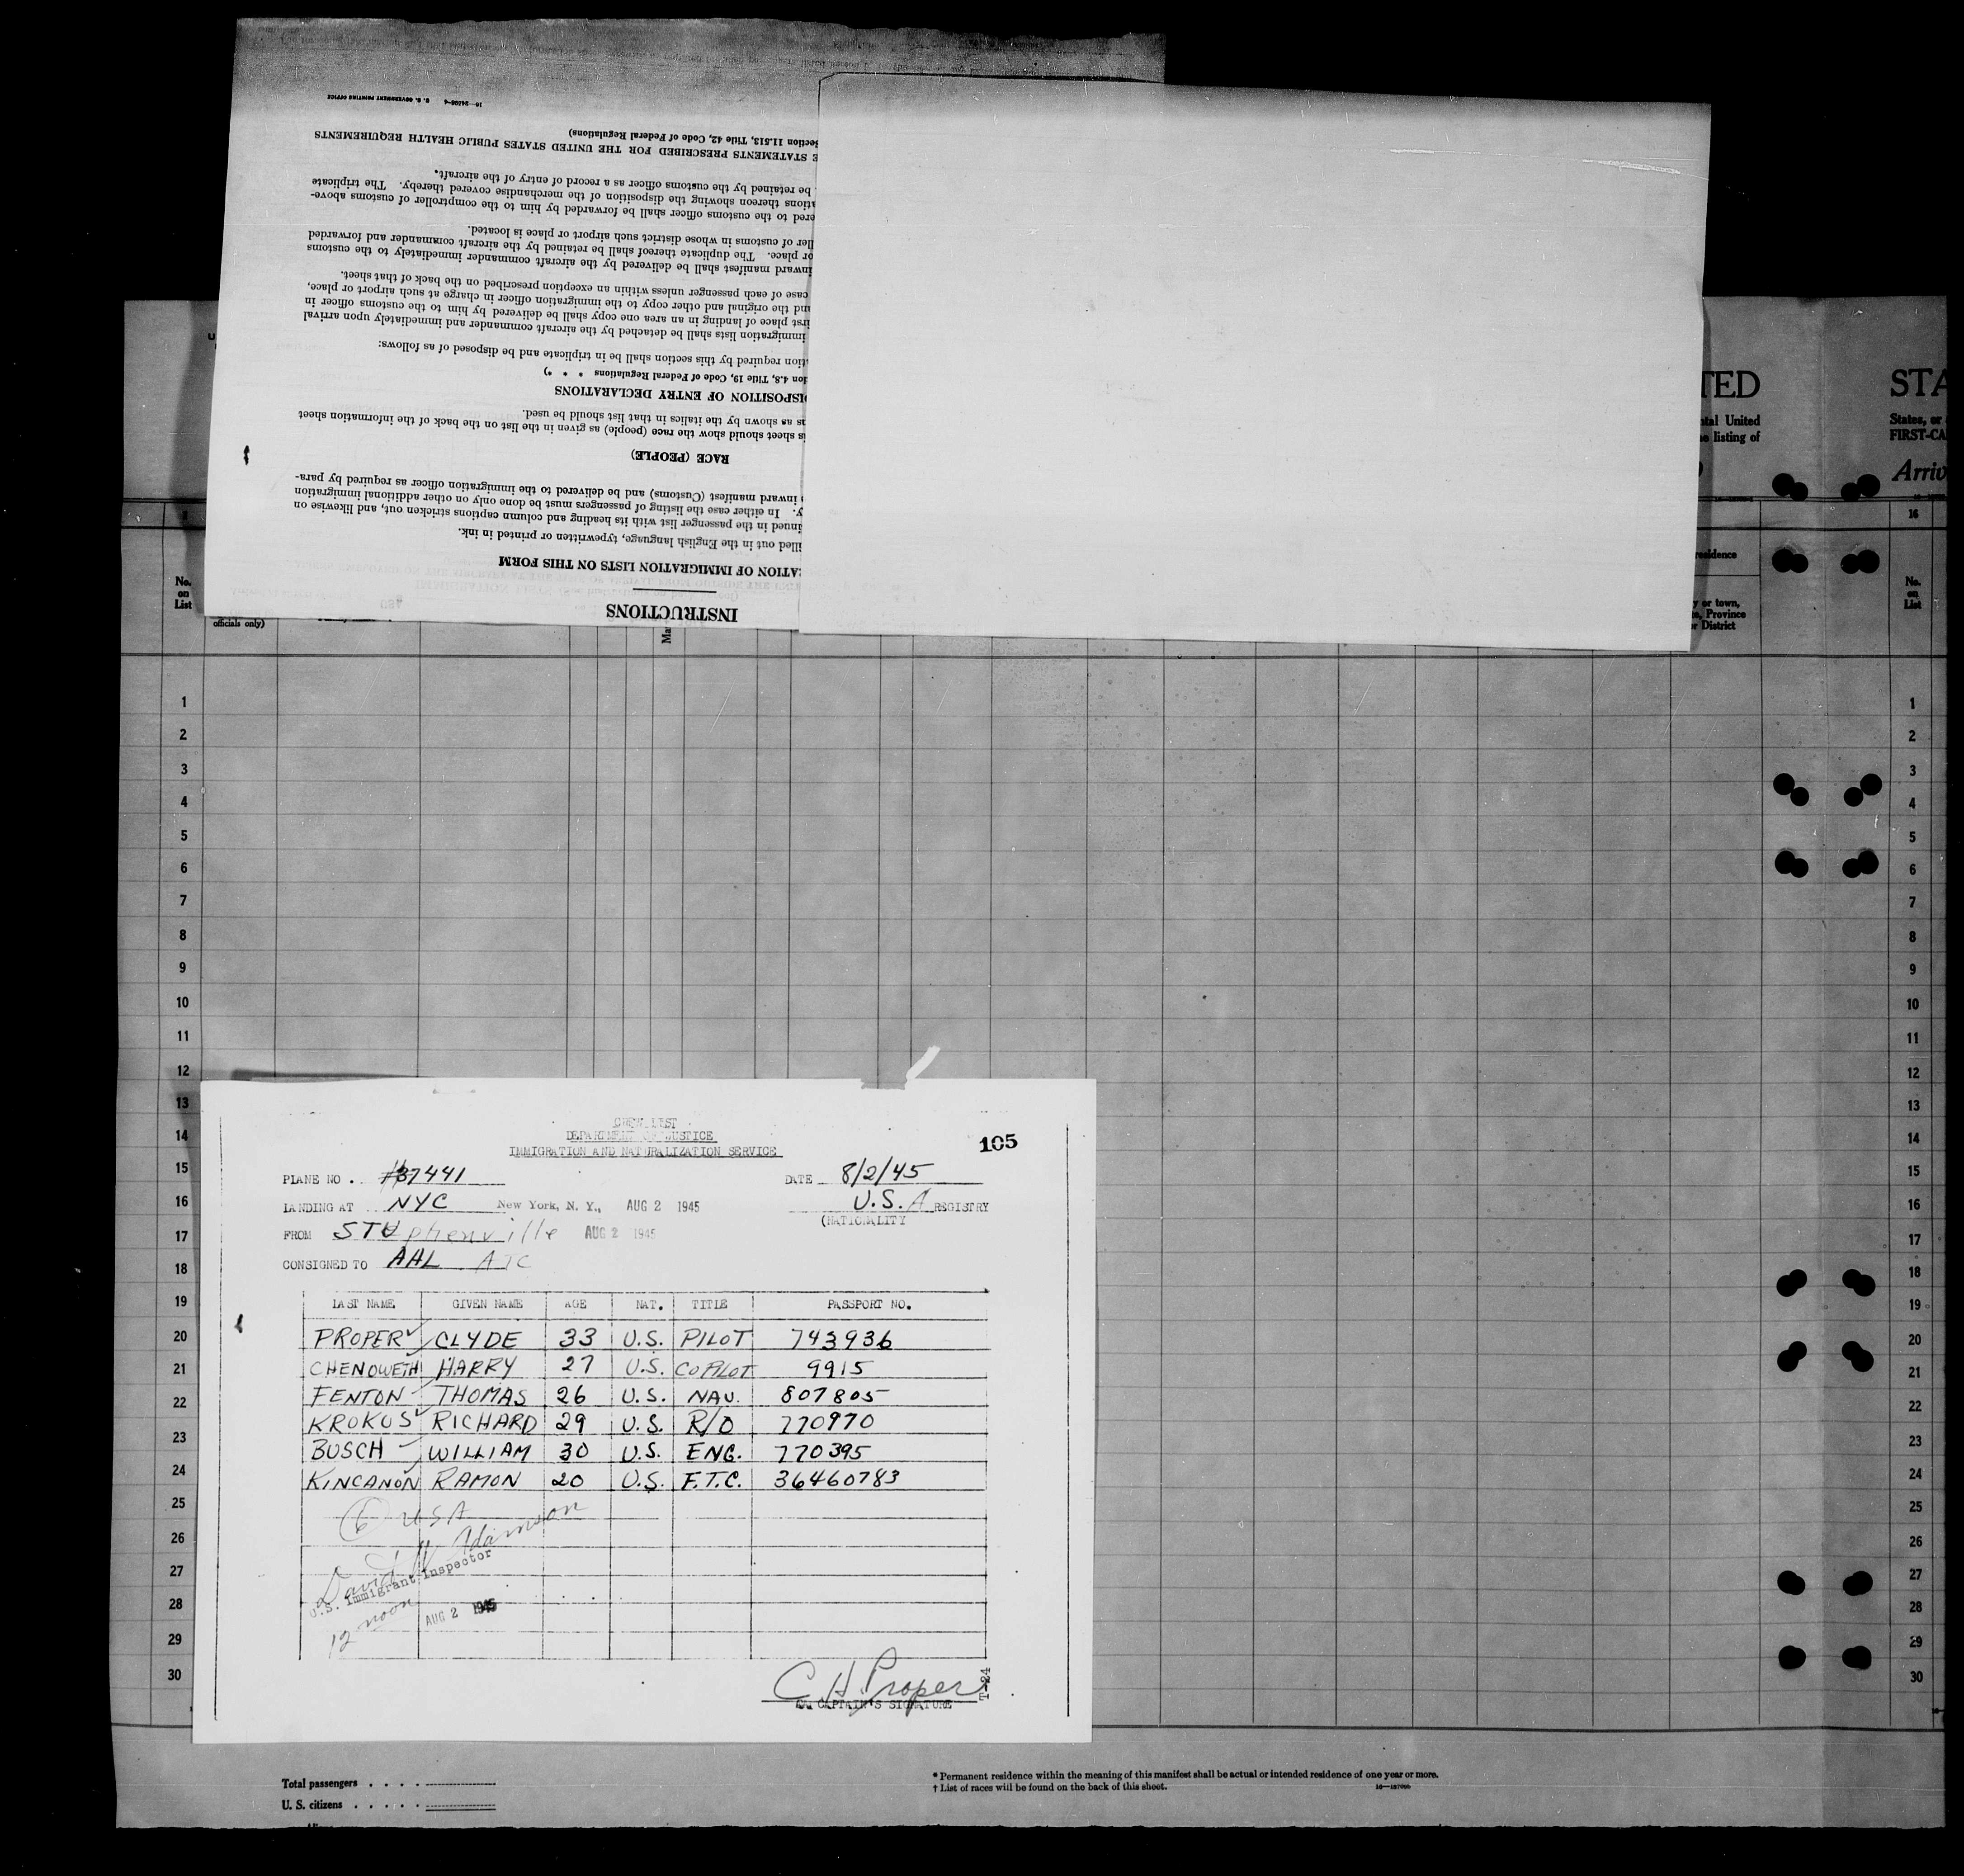 16—24306-4 U. S. GOVERNMENT PRINTING OFFICE
Section 11.513, Title 42, Code of Federal Regulations)
E STATEMENTS PRESCRIBED FOR THE UNITED STATES PUBLIC HEALTH REQUIREMENTS
be retained by the customs officer as a record of entry of the aircraft.
ations thereon showing the disposition of the merchandise covered thereby. The triplicate
ered to the customs officer shall be forwarded by him to the comptroller of customs above-
ller of customs in whose district such airport or place is located.
or place. The duplicate thereof shall be retained by the aircraft commander and forwarded
inward manifest shall be delivered by the aircraft commander immediately to the customs
case of each passenger unless within an exception prescribed on the back of that sheet.
and the original and other copy to the immigration officer in charge at such airport or place,
first place of landing in an area one copy shall be delivered by him to the customs officer in
immigration lists shall be detached by the aircraft commander and immediately upon arrival
ation required by this section shall be in triplicate and be disposed of as follows:
ion 4.8, Title 19, Code of Federal Regulations * * *)
DISPOSITION OF ENTRY DECLARATIONS
as as shown by the italics in that list should be used.
is sheet should show the race (people) as given in the list on the back of the information sheet
RACE (PEOPLE)
) inward manifest (Customs) and be delivered to the immigration officer as required by para-
y. In either case the listing of passengers must be done only on other additional immigration
nued in the passenger list with its heading and column captions stricken out, and likewise on
illed out in the English language, typewritten or printed in ink.
CATION OF IMMIGRATION LISTS ON THIS FORM
INSTRUCTIONS
TED STA
tal United States, or
e listing of FIRST-CA
Arriv
16
residence
No. on List
officials only)
Ma
y or town,
e, Province
r District
No. on List
1 1
2 2
3 3
4 4
5 5
6 6
7 7
8 8
9 9
10 10
11 11
12 12
13 13
14 14
15 15
16 16
17 17
18 18
19 19
20 20
21 21
22 22
23 23
24 24
25 25
26 26
27 27
28 28
29 29
30 30
CREW LIST
DEPARTMENT OF JUSTICE
IMMIGRATION AND NATURALIZATION SERVICE
105
PLANE NO. #37441 DATE 8/2/45
LANDING AT NYC New York, N. Y., AUG 2 1945 U.S.A REGISTRY
(NATIONALITY
FROM STephenville AUG 2 1945
CONSIGNED TO AAL ATC
LAST NAME GIVEN NAME AGE NAT. TITLE PASSPORT NO.
PROPER CLYDE 33 U.S. PILOT 743936
CHENOWETH HARRY 27 U.S. COPILOT 9915
FENTON THOMAS 26 U.S. NAV. 807805
KROKUS RICHARD 29 U.S. R/O 770970
BUSCH WILLIAM 30 U.S. ENG. 770395
KINCANON RAMON 20 U.S. F.T.C. 36460783
(6) USA
David W Adamson
U.S. Immigrant Inspector
12 noon AUG 2 1945
C H Proper
CAPTAIN'S SIGNATURE
T-24
Total passengers . . . .
U. S. citizens . . . . .
* Permanent residence within the meaning of this manifest shall be actual or intended residence of one year or more.
† List of races will be found on the back of this sheet.